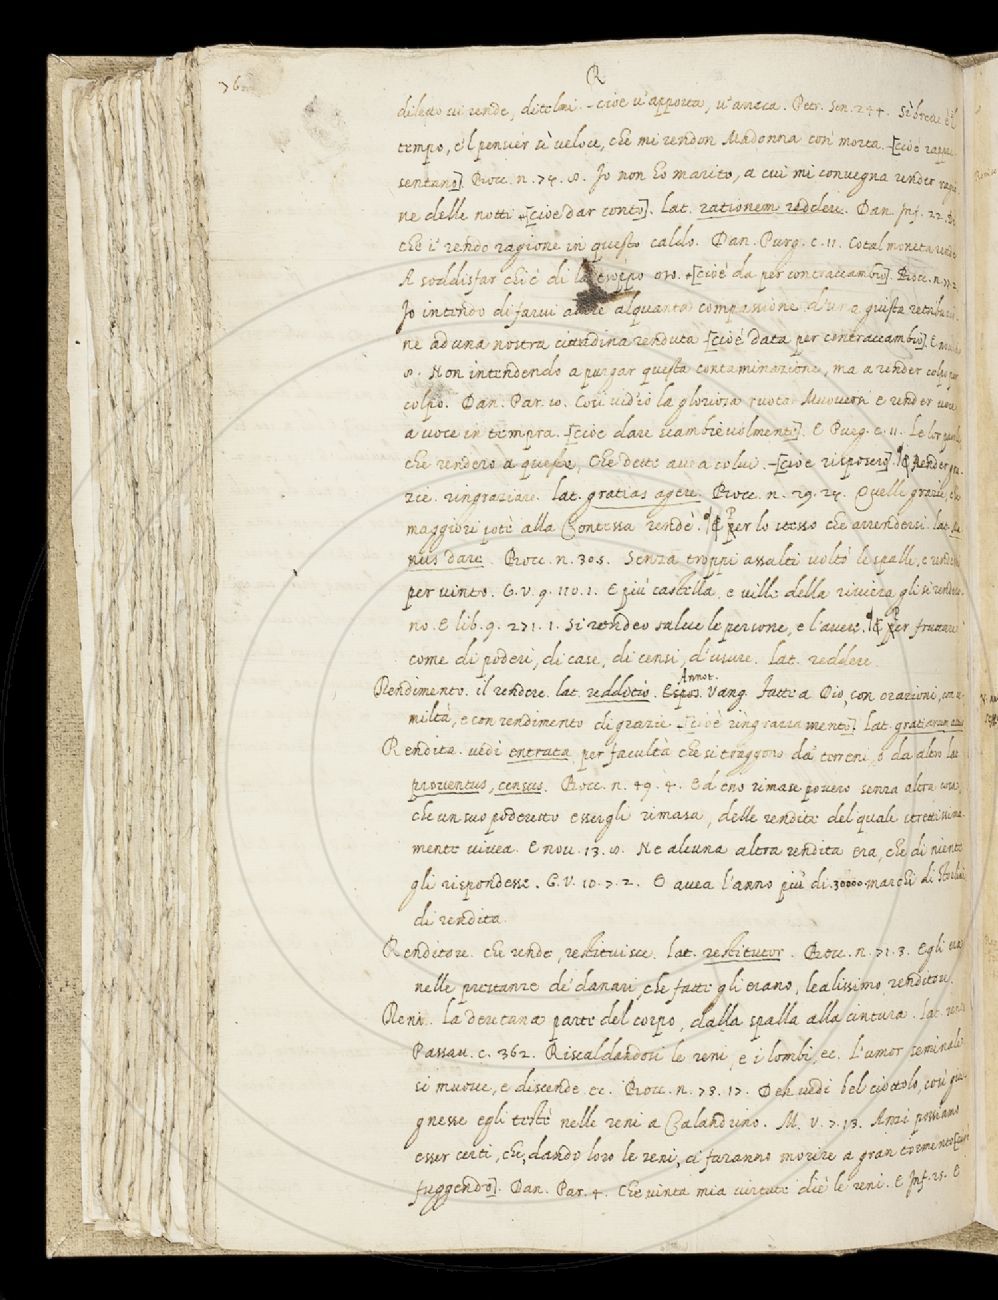 76
R
diletto vi rende, ditelmi. - cioè v'apporta, v'arreca. Petr. Son. 244. Sì breve è 'l
tempo, e 'l pensier sì veloce, che mi rendon Madonna così morta. -[cioè rappre
sentano]. Bocc. n. 74. 8. Io non ho marito, a cui mi convegna render ragio
ne delle notti -[cioè dar conto]. Lat. rationem reddere. Dan. Inf. 22. Di
che i' rendo ragione in questo caldo. Dan. Purg. c. 11. Cotal moneta rende
A soddisfar chi è di là troppo oso. -[cioè dà per contraccambio]. Bocc. n. 77. 2
Io intendo di farvi avere alquanto compassione d'una giusta retribuzio
ne ad una nostra cittadina renduta -[cioè data per contraccambio]. E
8. Non intendendo a purgar questa contaminazione, ma a render colpo per
colpo. Dan. Par. 10. Così vid' io la gloriosa ruota Muoversi e render voce
a voce in tempra. -[cioè dare scambievolmente]. E Purg. c. 11. Le lor parole
che rendero a queste, Che dette avea colui. -[cioè risposero]. ¶ Render gra
zie. ringraziare. lat. gratias agere. Bocc. n. 29. 24. Quelle grazie, che
maggiori potè alla Contessa rendè. ¶ Per lo stesso che arrendersi. lat. Ma
nus dare. Bocc. n. 30. 5. Senza troppi assalti voltò le spalle, e rendessi
per vinto. G. V. 9. 110. 1. E più castella, e ville della riviera gli si rendero
no. E lib. 9. 271. 1. Si rendeo salve le persone, e l'avere. ¶ Per fruttare
come di poderi, di case, di censi, d'usure. Lat. reddere.
Rendimento. il rendere. lat. redditio. Annot. Vang. Fatta a Dio, con orazioni, con u
miltà, e con rendimento di grazie -[cioè ringraziamento]. lat. gratiarum actio
Rendita. vedi entrata, per facultà che si traggono da' terreni, o da altro lat
proventus, census. Bocc. n. 49. 4. Ed eno rimase povero senza altra cosa,
che un suo poderetto essergli rimasa, delle rendite del quale strettissima
mente vivea. E nov. 13. 8. Nè alcuna altra rendita era, che di niente
gli rispondesse. G. V. 10. 7. 2. E avea l'anno più di 30000 marchi di
di rendita.
Renditore. che rende, restituisce. lat. restitutor. Bocc. n. 71. 3. Egli era
nelle prestanze de' danari, che fatte gli erano, lealissimo renditore.
Reni. La deretana parte del corpo, dalla spalla alla cintura. lat. renes
Passav. c. 362. Riscaldandosi le reni, e i lombi, ec. l'umor seminale
si muove, e discende ec. Bocc. n. 73. 17. Deh vedi bel ciottolo, così giu
gnesse egli testè nelle reni a Calandrino. M. V. 7. 13. Anzi possiamo
esser certi, che, dando loro le reni, ci faranno morire a gran tormento [cioè
fuggendo]. Dan. Par. 4. Che vinta mia virtute diè le reni. E Inf. 25. E